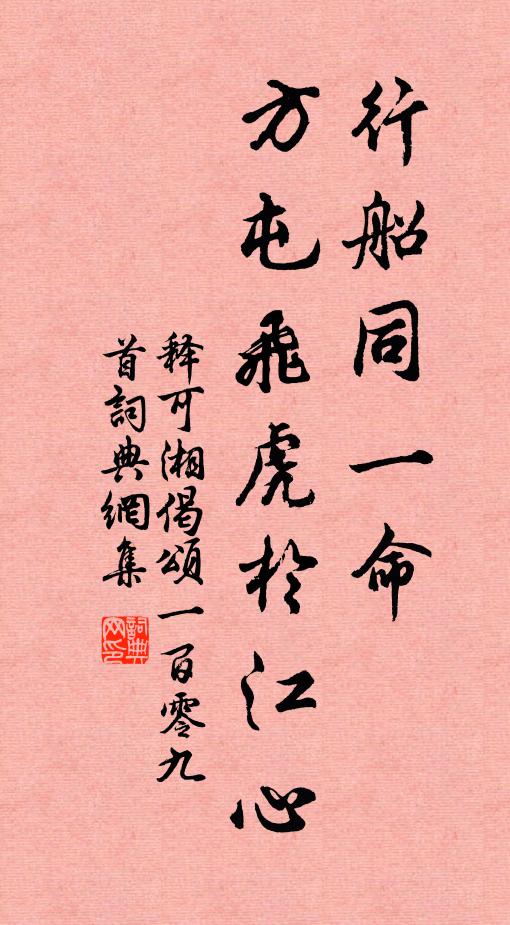 行船同一命
方屯飛虎於江心
释可湘偈頌一百零九
首詞典網集
詞典网印